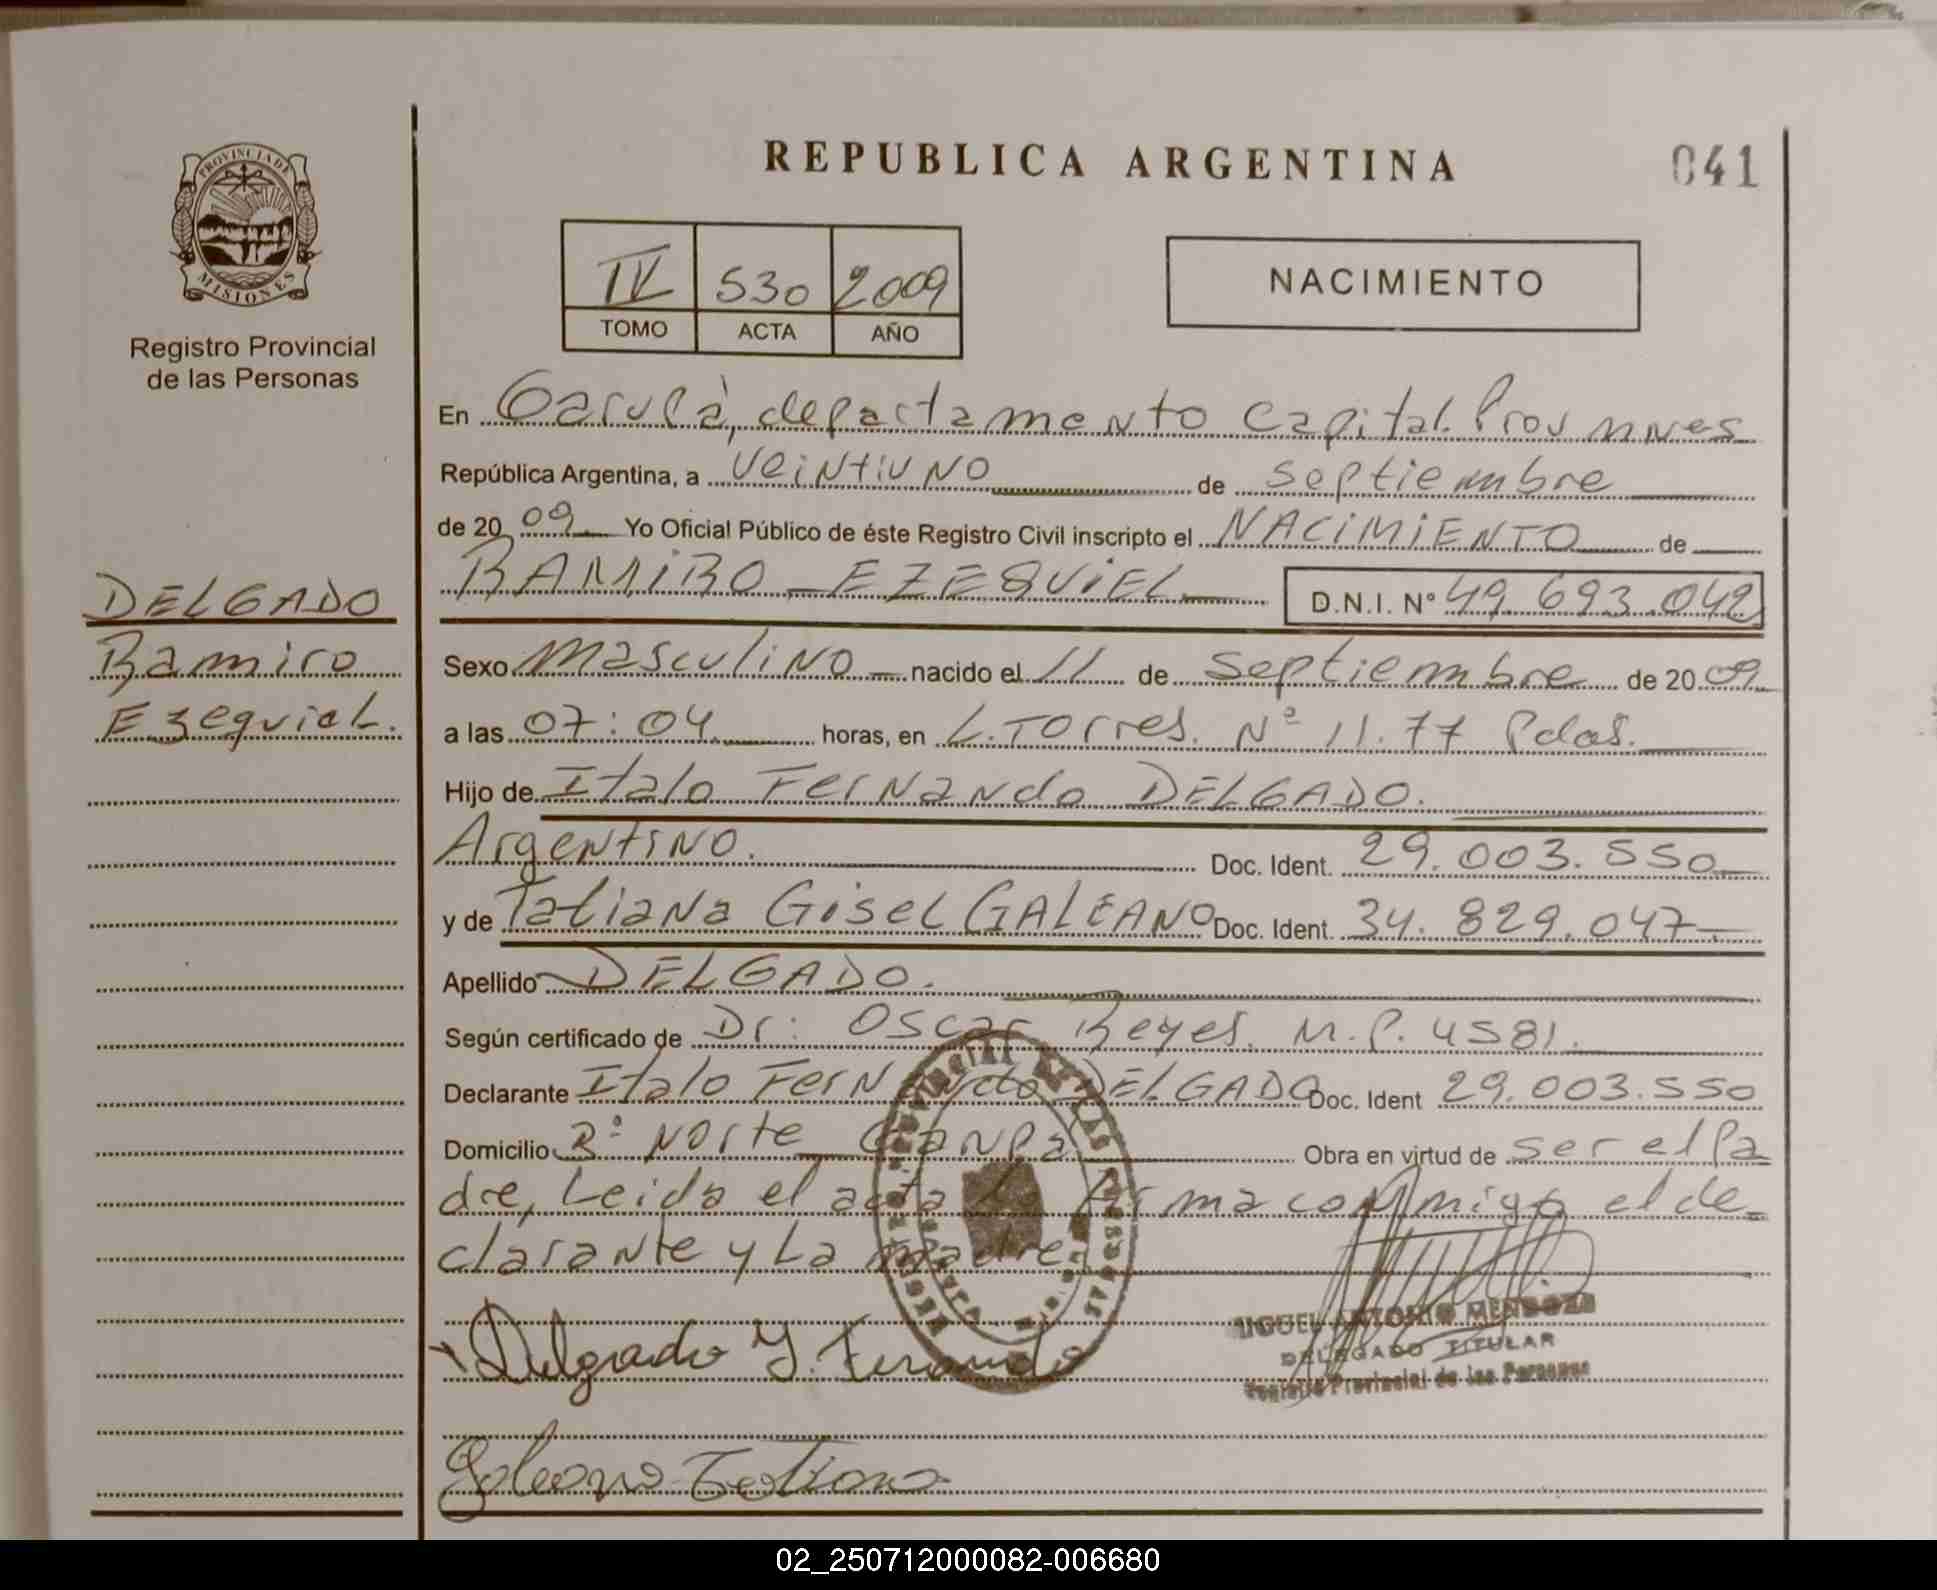 REPUBLICA ARGENTINA
041
PROVINCIA DE
MISIONES
Registro Provincial
de las Personas
IV 530 2009
TOMO ACTA AÑO
NACIMIENTO
En Garupá, departamento Capital. Prov mnes
República Argentina, a veintiuno de septiembre
de 2009 Yo Oficial Público de éste Registro Civil inscripto el NACIMIENTO de
RAMIRO EZEQUIEL D.N.I. N° 49.693.042
DELGADO
Ramiro
Ezequiel.
Sexo Masculino nacido el 11 de septiembre de 2009
a las 07:04 horas, en L. Torres. Nº 11.77 Pdas.
Hijo de Italo Fernando DELGADO.
Argentino. Doc. Ident. 29.003.550
y de Tatiana Gisel GALEANO Doc. Ident. 34.829.047
Apellido DELGADO.
Según certificado de Dr: Oscar Reyes. M.P. 4581.
Declarante Italo Fernando DELGADO Doc. Ident 29.003.550
Domicilio Bº Norte Obra en virtud de ser el pa
dre, Leida el acta la firma conmigo el de-
clarante y La madre
Delgado Y. Fernando
MIGUEL ANTONIO MENDOZA
DELEGADO TITULAR
Registro Provincial de las Personas
Galeano Tatiana
02_250712000082-006680